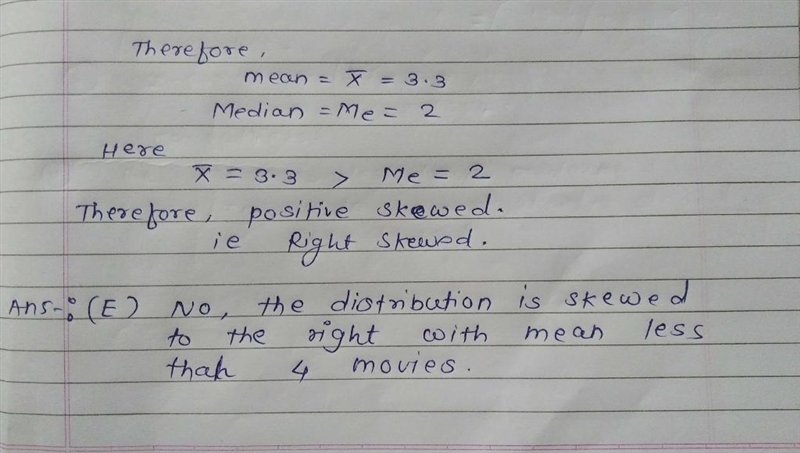 Therefore,
mean = x̄ = 3.3
Median = Me = 2
Here
x̄ = 3.3 > Me = 2
Therefore, positive skewed.
ie Right skewed.
Ans-: (E) No, the distribution is skewed
to the right with mean less
than 4 movies.